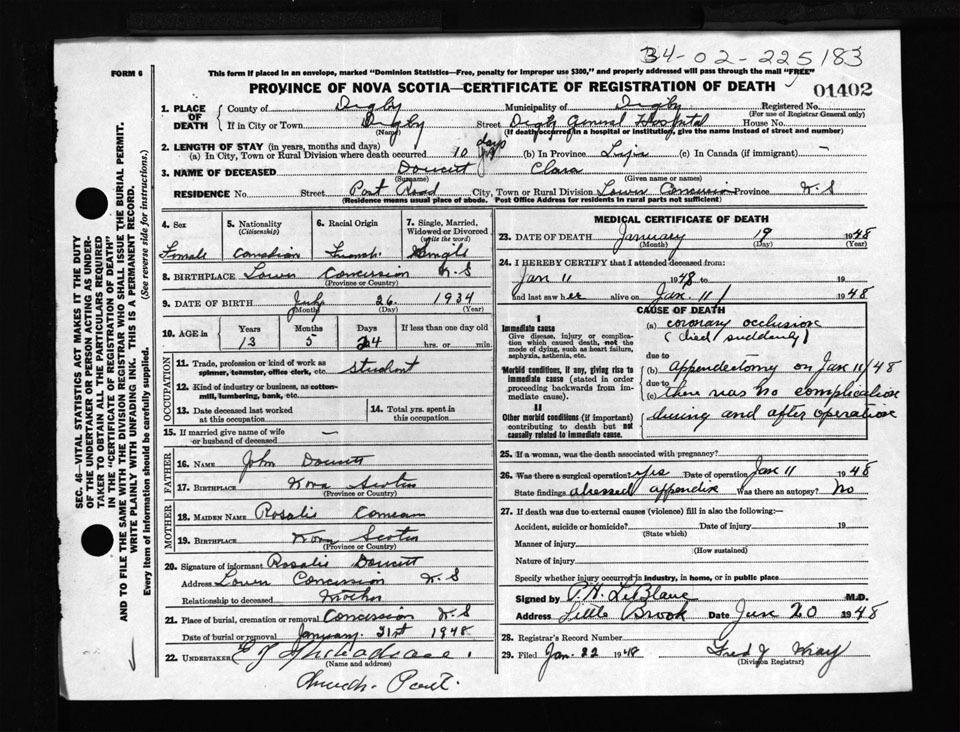 34-02-225183
FORM 6
This form if placed in an envelope, marked "Dominion Statistics—Free, penalty for improper use $300," and properly addressed will pass through the mail "FREE"
PROVINCE OF NOVA SCOTIA—CERTIFICATE OF REGISTRATION OF DEATH
01402
1. PLACE OF DEATH
County of Digby Municipality of Digby Registered No.
(For use of Registrar General only)
If in City or Town Digby Street Digby General Hospital House No.
(Name) (If death occurred in a hospital or institution, give the name instead of street and number)
2. LENGTH OF STAY (in years, months and days)
(a) In City, Town or Rural Division where death occurred 10 days (b) In Province Life (c) In Canada (if immigrant) —
3. NAME OF DECEASED Doucett Clara
(Surname) (Given name or names)
RESIDENCE No. Street Port Road City, Town or Rural Division Lower Concession Province N.S
(Residence means usual place of abode. Post Office Address for residents in rural parts not sufficient)
4. Sex
Female
5. Nationality
(Citizenship)
Canadian
6. Racial Origin
French
7. Single, Married, Widowed or Divorced
(write the word)
Single
8. BIRTHPLACE Lower Concession N.S
(Province or Country)
9. DATE OF BIRTH July 26. 1934
(Month) (Day) (Year)
10. AGE in Years Months Days If less than one day old
13 5 24 hrs. or min.
OCCUPATION
11. Trade, profession or kind of work as spinner, teamster, office clerk, etc. Student
12. Kind of industry or business, as cotton-mill, lumbering, bank, etc.
13. Date deceased last worked at this occupation
14. Total yrs. spent in this occupation
15. If married give name of wife or husband of deceased —
FATHER
16. NAME John Doucett
17. BIRTHPLACE Nova Scotia
(Province or Country)
MOTHER
18. MAIDEN NAME Rosalie Comeau
19. BIRTHPLACE Nova Scotia
(Province or Country)
20. Signature of informant Rosalie Doucett
Address Lower Concession N.S
Relationship to deceased Mother
21. Place of burial, cremation or removal Concession N.S
Date of burial or removal January. 21st 1948
22. UNDERTAKER E J
(Name and address)
Church Point.
MEDICAL CERTIFICATE OF DEATH
23. DATE OF DEATH January 19 1948
(Month) (Day) (Year)
24. I HEREBY CERTIFY that I attended deceased from:
Jan 11 1948 to 19
and last saw her alive on Jan. 11 1948
CAUSE OF DEATH
I
Immediate cause
Give disease, injury or complication which caused death, not the mode of dying, such as heart failure, asphyxia, asthenia, etc.
(a) coronary occlusion
(died suddenly)
due to
Morbid conditions, if any, giving rise to immediate cause (stated in order proceeding backwards from immediate cause).
(b) Appendectomy on Jan 11/48
due to
(c) there was no complication
II
Other morbid conditions (if important) contributing to death but not causally related to immediate cause.
during and after operation
25. If a woman, was the death associated with pregnancy?
26. Was there a surgical operation? yes Date of operation Jan 11 1948
State findings abscessed appendix Was there an autopsy? No
27. If death was due to external causes (violence) fill in also the following:—
Accident, suicide or homicide? Date of injury 19
(State which)
Manner of injury
(How sustained)
Nature of injury
Specify whether injury occurred in industry, in home, or in public place
Signed by P.H. LeBlanc M.D.
Address Little Brook Date Jan 20 1948
28. Registrar's Record Number
29. Filed Jan. 22 1948 Fred J Wray
(Division Registrar)
SEC. 46—VITAL STATISTICS ACT MAKES IT THE DUTY
OF THE UNDERTAKER OR PERSON ACTING AS UNDER-
TAKER TO OBTAIN ALL THE PARTICULARS REQUIRED
IN THE "CERTIFICATE OF REGISTRATION OF DEATH"
AND TO FILE THE SAME WITH THE DIVISION REGISTRAR WHO SHALL ISSUE THE BURIAL PERMIT.
WRITE PLAINLY WITH UNFADING INK. THIS IS A PERMANENT RECORD.
Every item of information should be carefully supplied. (See reverse side for instructions.)